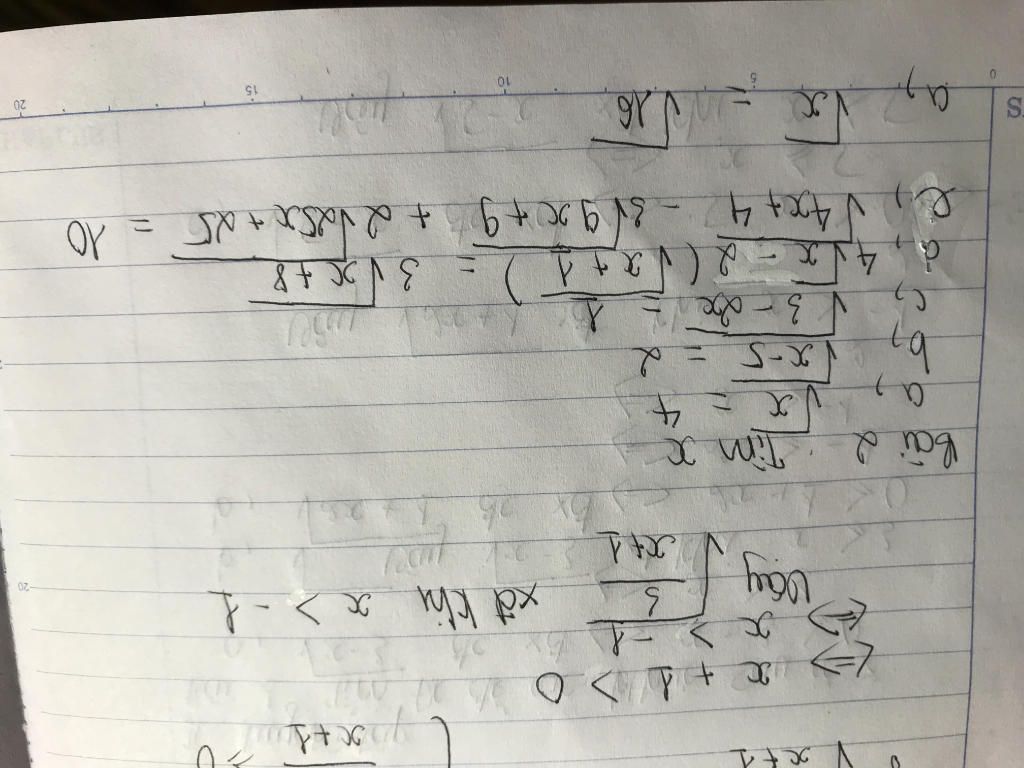 ⇔ x + 1 > 0
⇔ x > -1
Vậy √(3/(x+1)) xđ khi x > -1
Bài 2 : Tìm x
a, √x = 4
b, √(x-5) = 2
c, √(3-2x) = 1
d, 4√x - 2(√(x+1)) = 3√(x+8)
e, √(4x+4) - 3√(9x+9) + 2√(25x+25) = 10
a, √x = √16